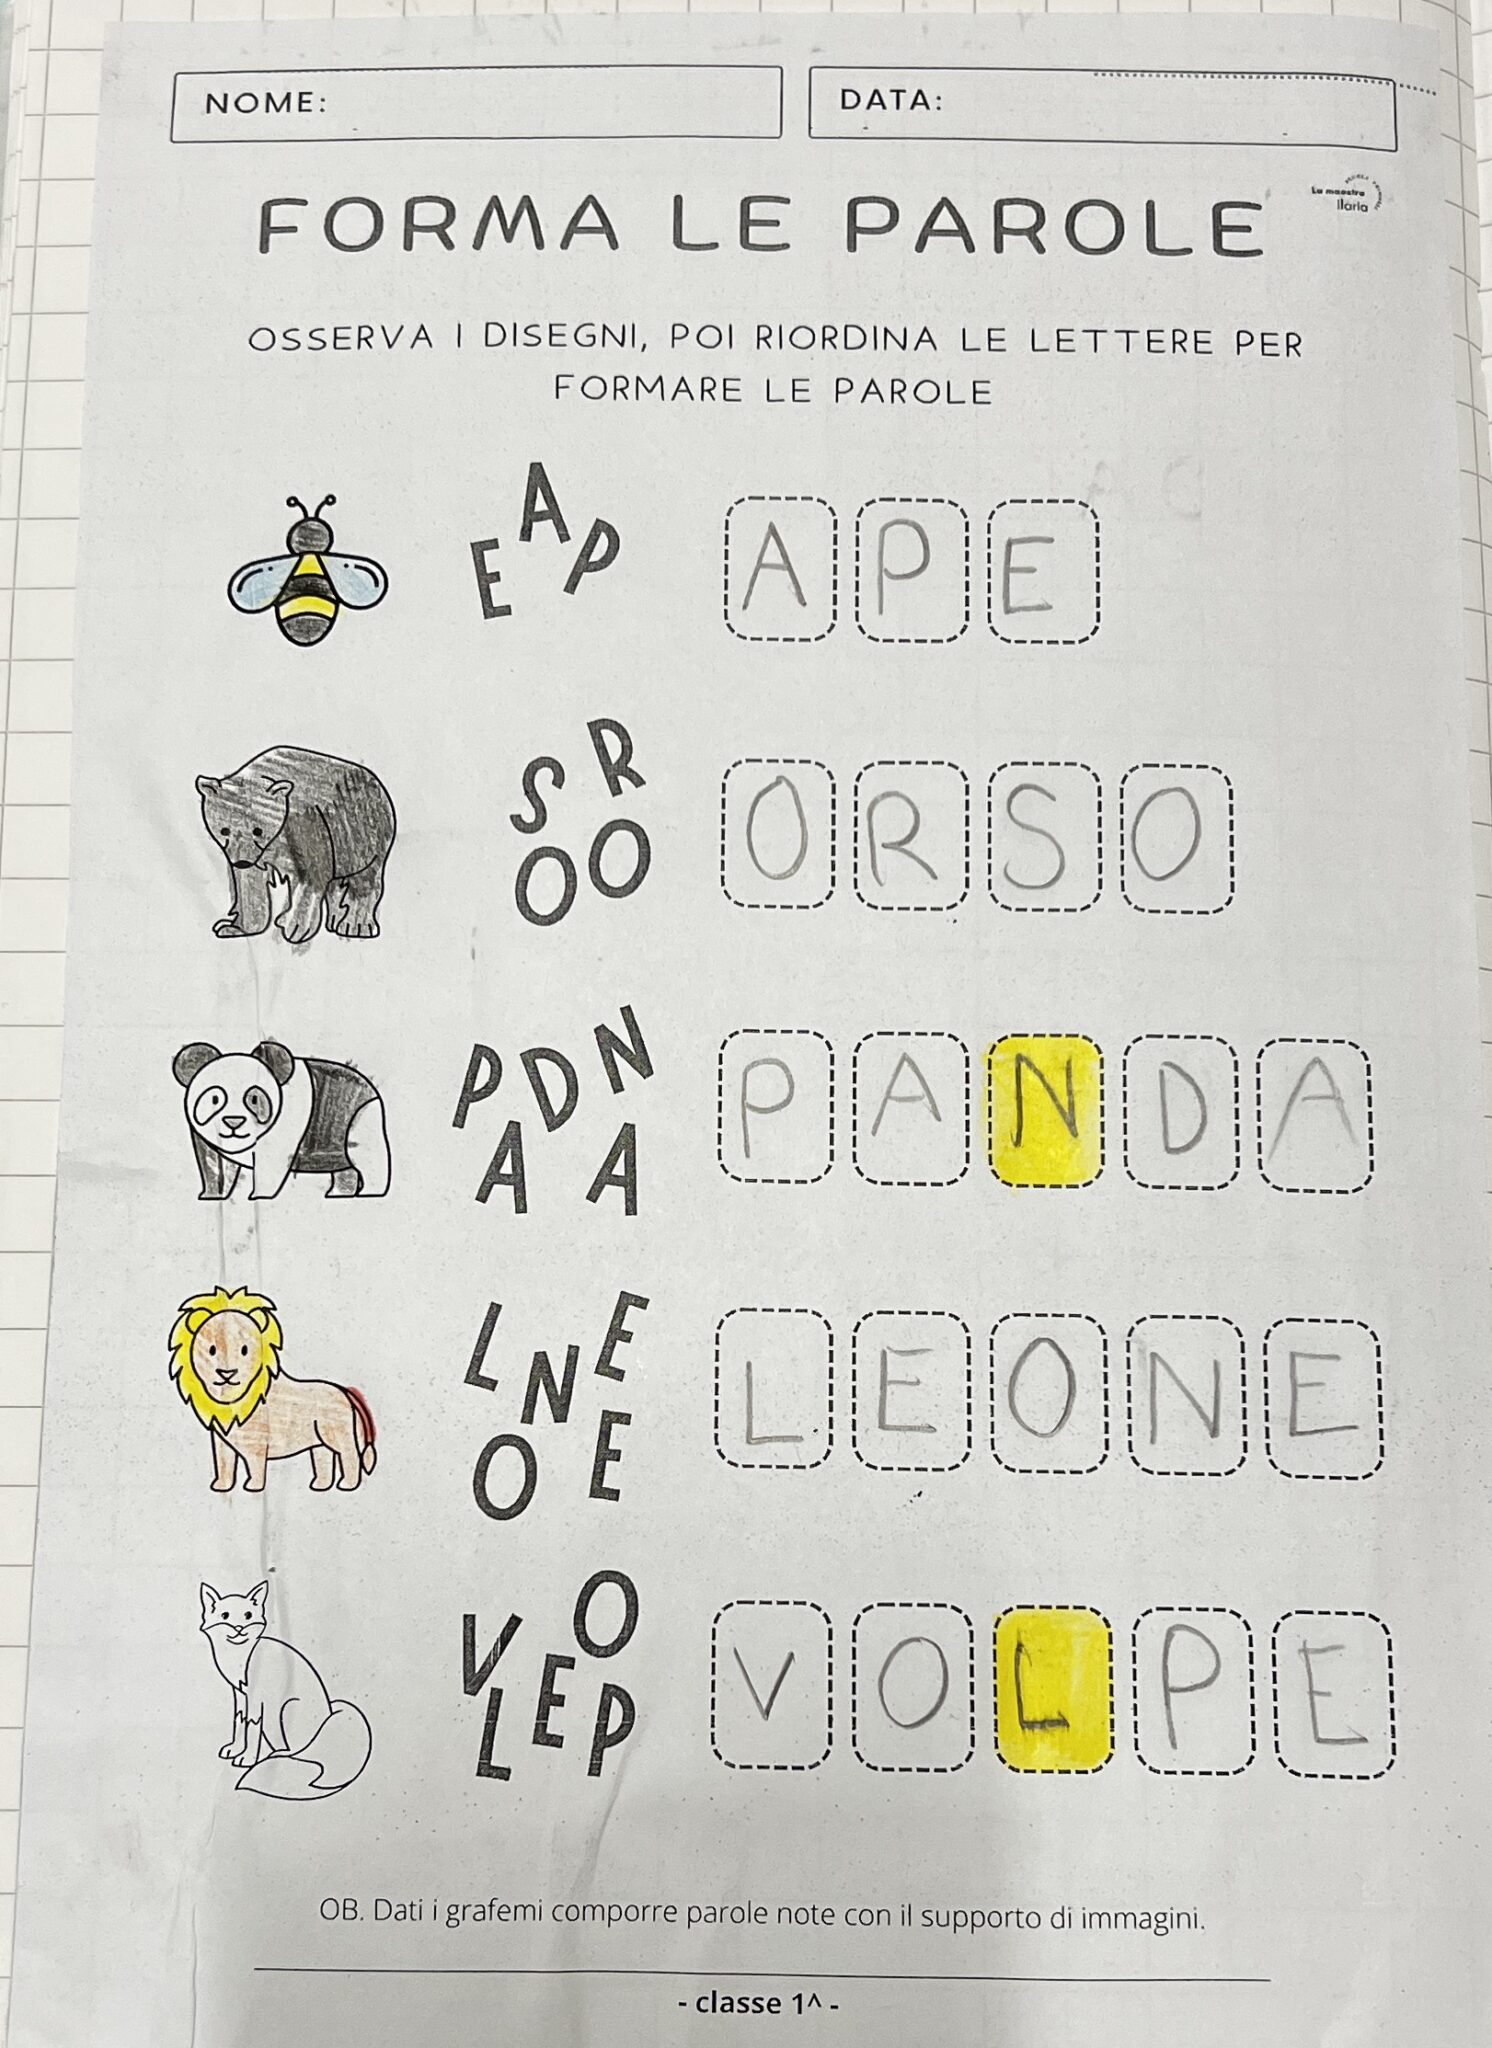 NOME:
DATA:
La maestra
Ilaria
FORMA LE PAROLE
OSSERVA I DISEGNI, POI RIORDINA LE LETTERE PER
FORMARE LE PAROLE
E A P
A P E
S R O O
O R S O
P D N A A
P A N D A
L N E O E
L E O N E
V O L E P
V O L P E
OB. Dati i grafemi comporre parole note con il supporto di immagini.
- classe 1^ -